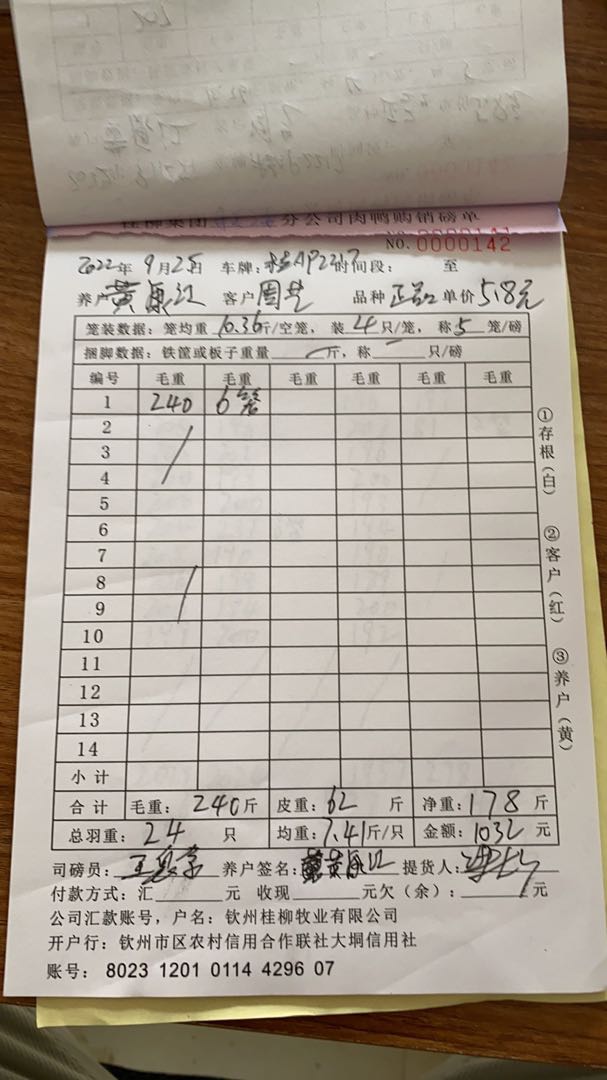 桂柳集团 分公司肉鸭购销磅单
NO. 0000141
NO. 0000142
2022年 9月25日 车牌:桂AP2217时间段: 至
养户 黄康江 客户 周芝 品种 正品 单价 5.18元
笼装数据: 笼均重 10.36斤/空笼, 装 4 只/笼, 称 5 笼/磅
捆脚数据: 铁筐或板子重量 斤, 称 只/磅
编号 毛重 毛重 毛重 毛重 毛重 毛重
1 240 6笼
2
3
4
5
6
7
8
9
10
11
12
13
14
小计
合计 毛重: 240斤 皮重: 62 斤 净重: 178 斤
总羽重: 24 只 均重: 7.41斤/只 金额: 1032 元
司磅员: 养户签名: 黄康江 提货人:
付款方式: 汇 元 收现 元欠(余): 元
公司汇款账号, 户名: 钦州桂柳牧业有限公司
开户行: 钦州市区农村信用合作联社大垌信用社
账号: 8023 1201 0114 4296 07
①存根(白)
②客户(红)
③养户(黄)